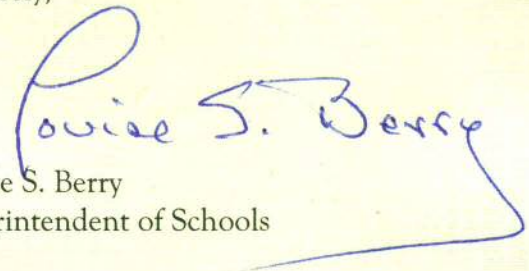 Louise S. Berry
e S. Berry
rintendent of Schools